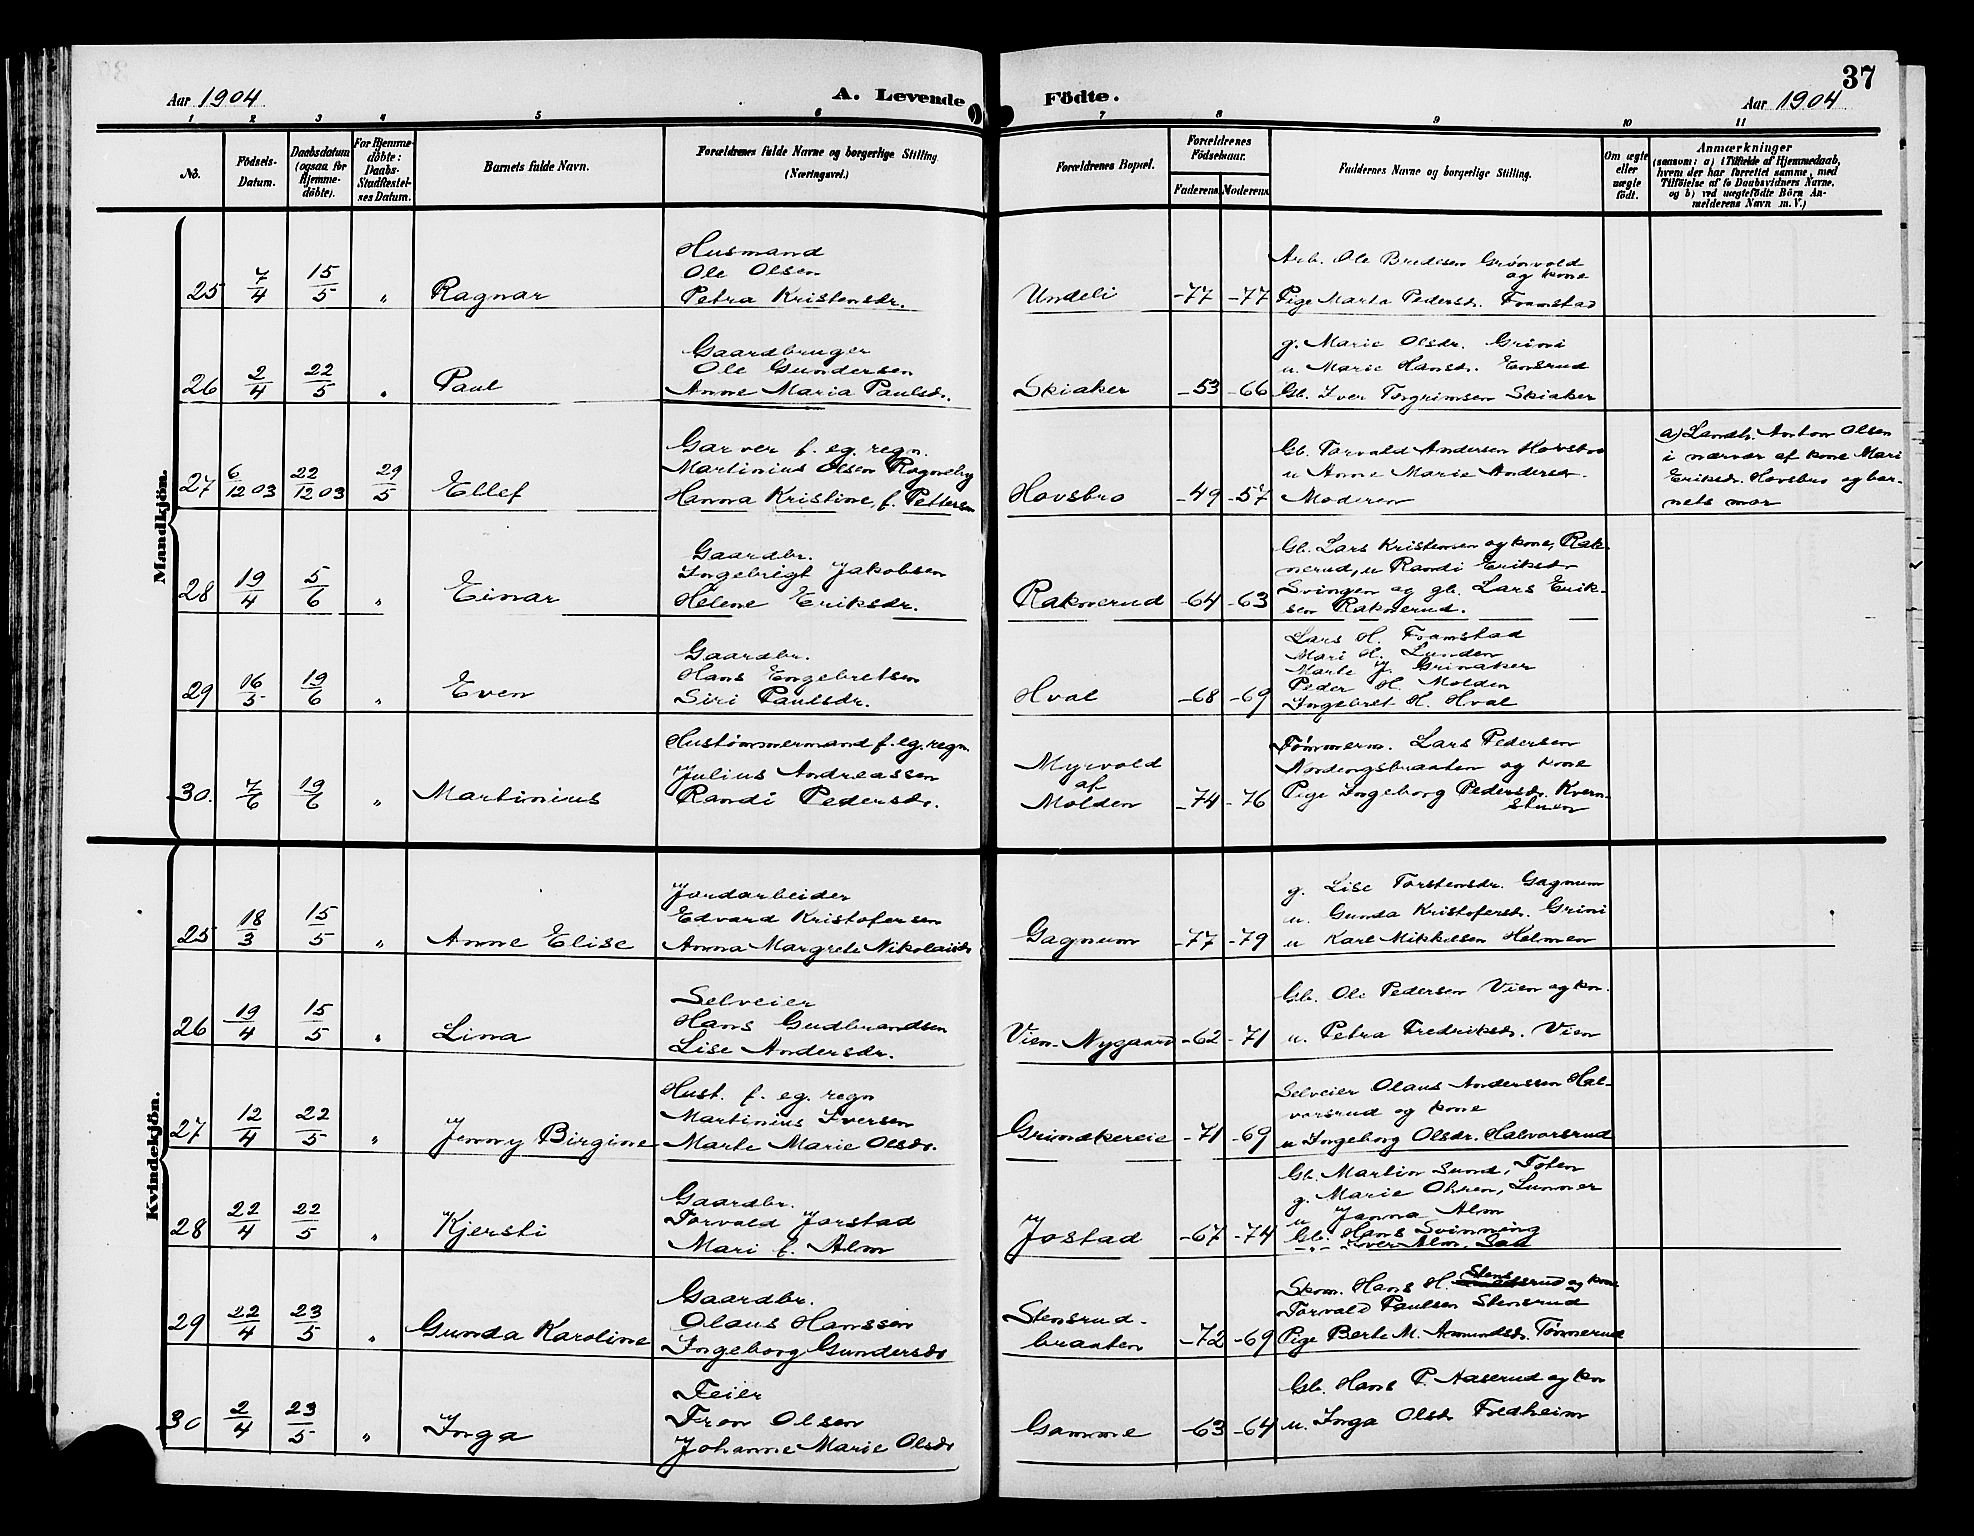 37
Aar 1904
A. Levende
Födte.
Aar 1904
1 2 3 4 5 6 7 8 9 10 11
No.
Födsels-
Datum.
Daabsdatum
(ogsaa for
Hjemme-
döbte).
For Hjemme-
döbte:
Daabs-
Stadfæstel-
ses Datum.
Barnets fulde Navn.
Forældrenes fulde Navne og borgerlige Stilling
(Næringsvei.)
Forældrenes Bopæl.
Forældrenes
Födselsaar.
Faderens. Moderens.
Faddernes Navne og borgerlige Stilling.
Om ægte
eller
uægte
födt.
Anmærkninger
(saasom: a) i Tilfælde af Hjemmedaab,
hvem der har forrettet samme, med
Tilföielse af to Daabsvidners Navne,
og b) ved uægtefödte Börn An-
melderens Navn m. V.)
Mandkjön.
25 7/4 15/5 " Ragnar
Husmand
Ole Olsen
Petra Kristensdr.
Undeli -77 -77
Arb. Ole Bredesen Grönvold
og kone
Pige Marta Pedersdr. Framstad
26 2/4 22/5 " Paul
Gaardbruger
Ole Gundersen
Anne Maria Paulsdr.
Skiaker -53 -66
g. Marie Olsdr. Grini
u. Marie Hansdr. Ensrud
Gb. Iver Torgrimsen Skiaker
27 6/12 03 22/12 03 29/5 Ellef
Garver f. eg. regn.
Martinius Olsen Rogneby
Hanna Kristine, f. Pettersen
Hovsbro -49 -57
Gb. Torvald Andersen Hovsbro
u Anne Marie Andersdr.
Moderen
a) Landh. Anton Olsen
i nærvær af kone Mari
Eriksdr. Hovsbro og bar-
nets mor
28 19/4 5/6 " Einar
Gaardbr.
Ingebrigt Jakobsen
Helene Eriksdr.
Raknerud -64 -63
Gb. Lars Kristensen og kone, Rak-
nerud, u Randi Eriksdr
Svingen og gb. Lars Erik-
sen Raknerud.
29 16/5 19/6 " Even
Gaardbr.
Hans Engebretsen
Siri Paulsdr.
Hval -68 -69
Lars H. Framstad
Mari H. Lunden
Marte J. Grinaker
Peder H. Molden
Ingebret H. Hval
30. 7/6 19/6 " Martinius
Hustømmermand f. eg. regn.
Julius Andreassen
Randi Pedersdr.
Myrvold
af
Molden -74 -76
Tømmerm. Lars Pedersen
Nordengsbraaten og kone
Pige Ingeborg Pedersdr. Kvern-
stuen
Kvindekjön.
25 18/3 15/5 " Anne Elise
Jordarbeider
Edvard Kristofersen
Anna Margrete Nikolaisdr
Gagnum -77 -79
g. Lise Torstensdr. Gagnum
u. Gunda Kristofersdr. Grini
u Karl Mikkelsen Helmen
26 19/4 15/5 " Lina
Selveier
Hans Gudbrandsen
Lise Andersdr.
Vien-Nygaard -62 -71
Gb. Ole Pedersen Vien og kon.
u. Petra Fredriksdr. Vien
27 12/4 22/5 " Jenny Birgine
Hust. f. eg. regn
Martinius Iversen
Marte Marie Olsdr.
Grinakereie -71 -69
Selveier Olaus Anderssen Hal-
vorsrud og kone
u Ingeborg Olsdr. Halvorsrud
28 22/4 22/5 " Kjersti
Gaardbr.
Torvald Jorstad
Mari f. Alm
Jostad -67 -74
Gb. Martin Sund, Toten
g. Marie Ohren, Lunner
u Janna Alm
Gb. Hans Svinning
-"- Iver Alm, Søu
29 22/4 23/5 " Gunda Karoline
Gaardbr.
Olaus Hanssen
Ingeborg Gundersdr
Stensrud-
braaten -72 -69
Skom. Hans H. Stensrud og kone
Torvald Paulsen Stensrud
Pige Berte M. Amundsdr. Tømmerud
30 2/4 23/5 " Inga
Feier
Fron Olsen
Johanne Marie Olsdr
Gamme -63 -64
Gb. Hans P. Aaserud og kon
u. Inga Olsdr Fredheim